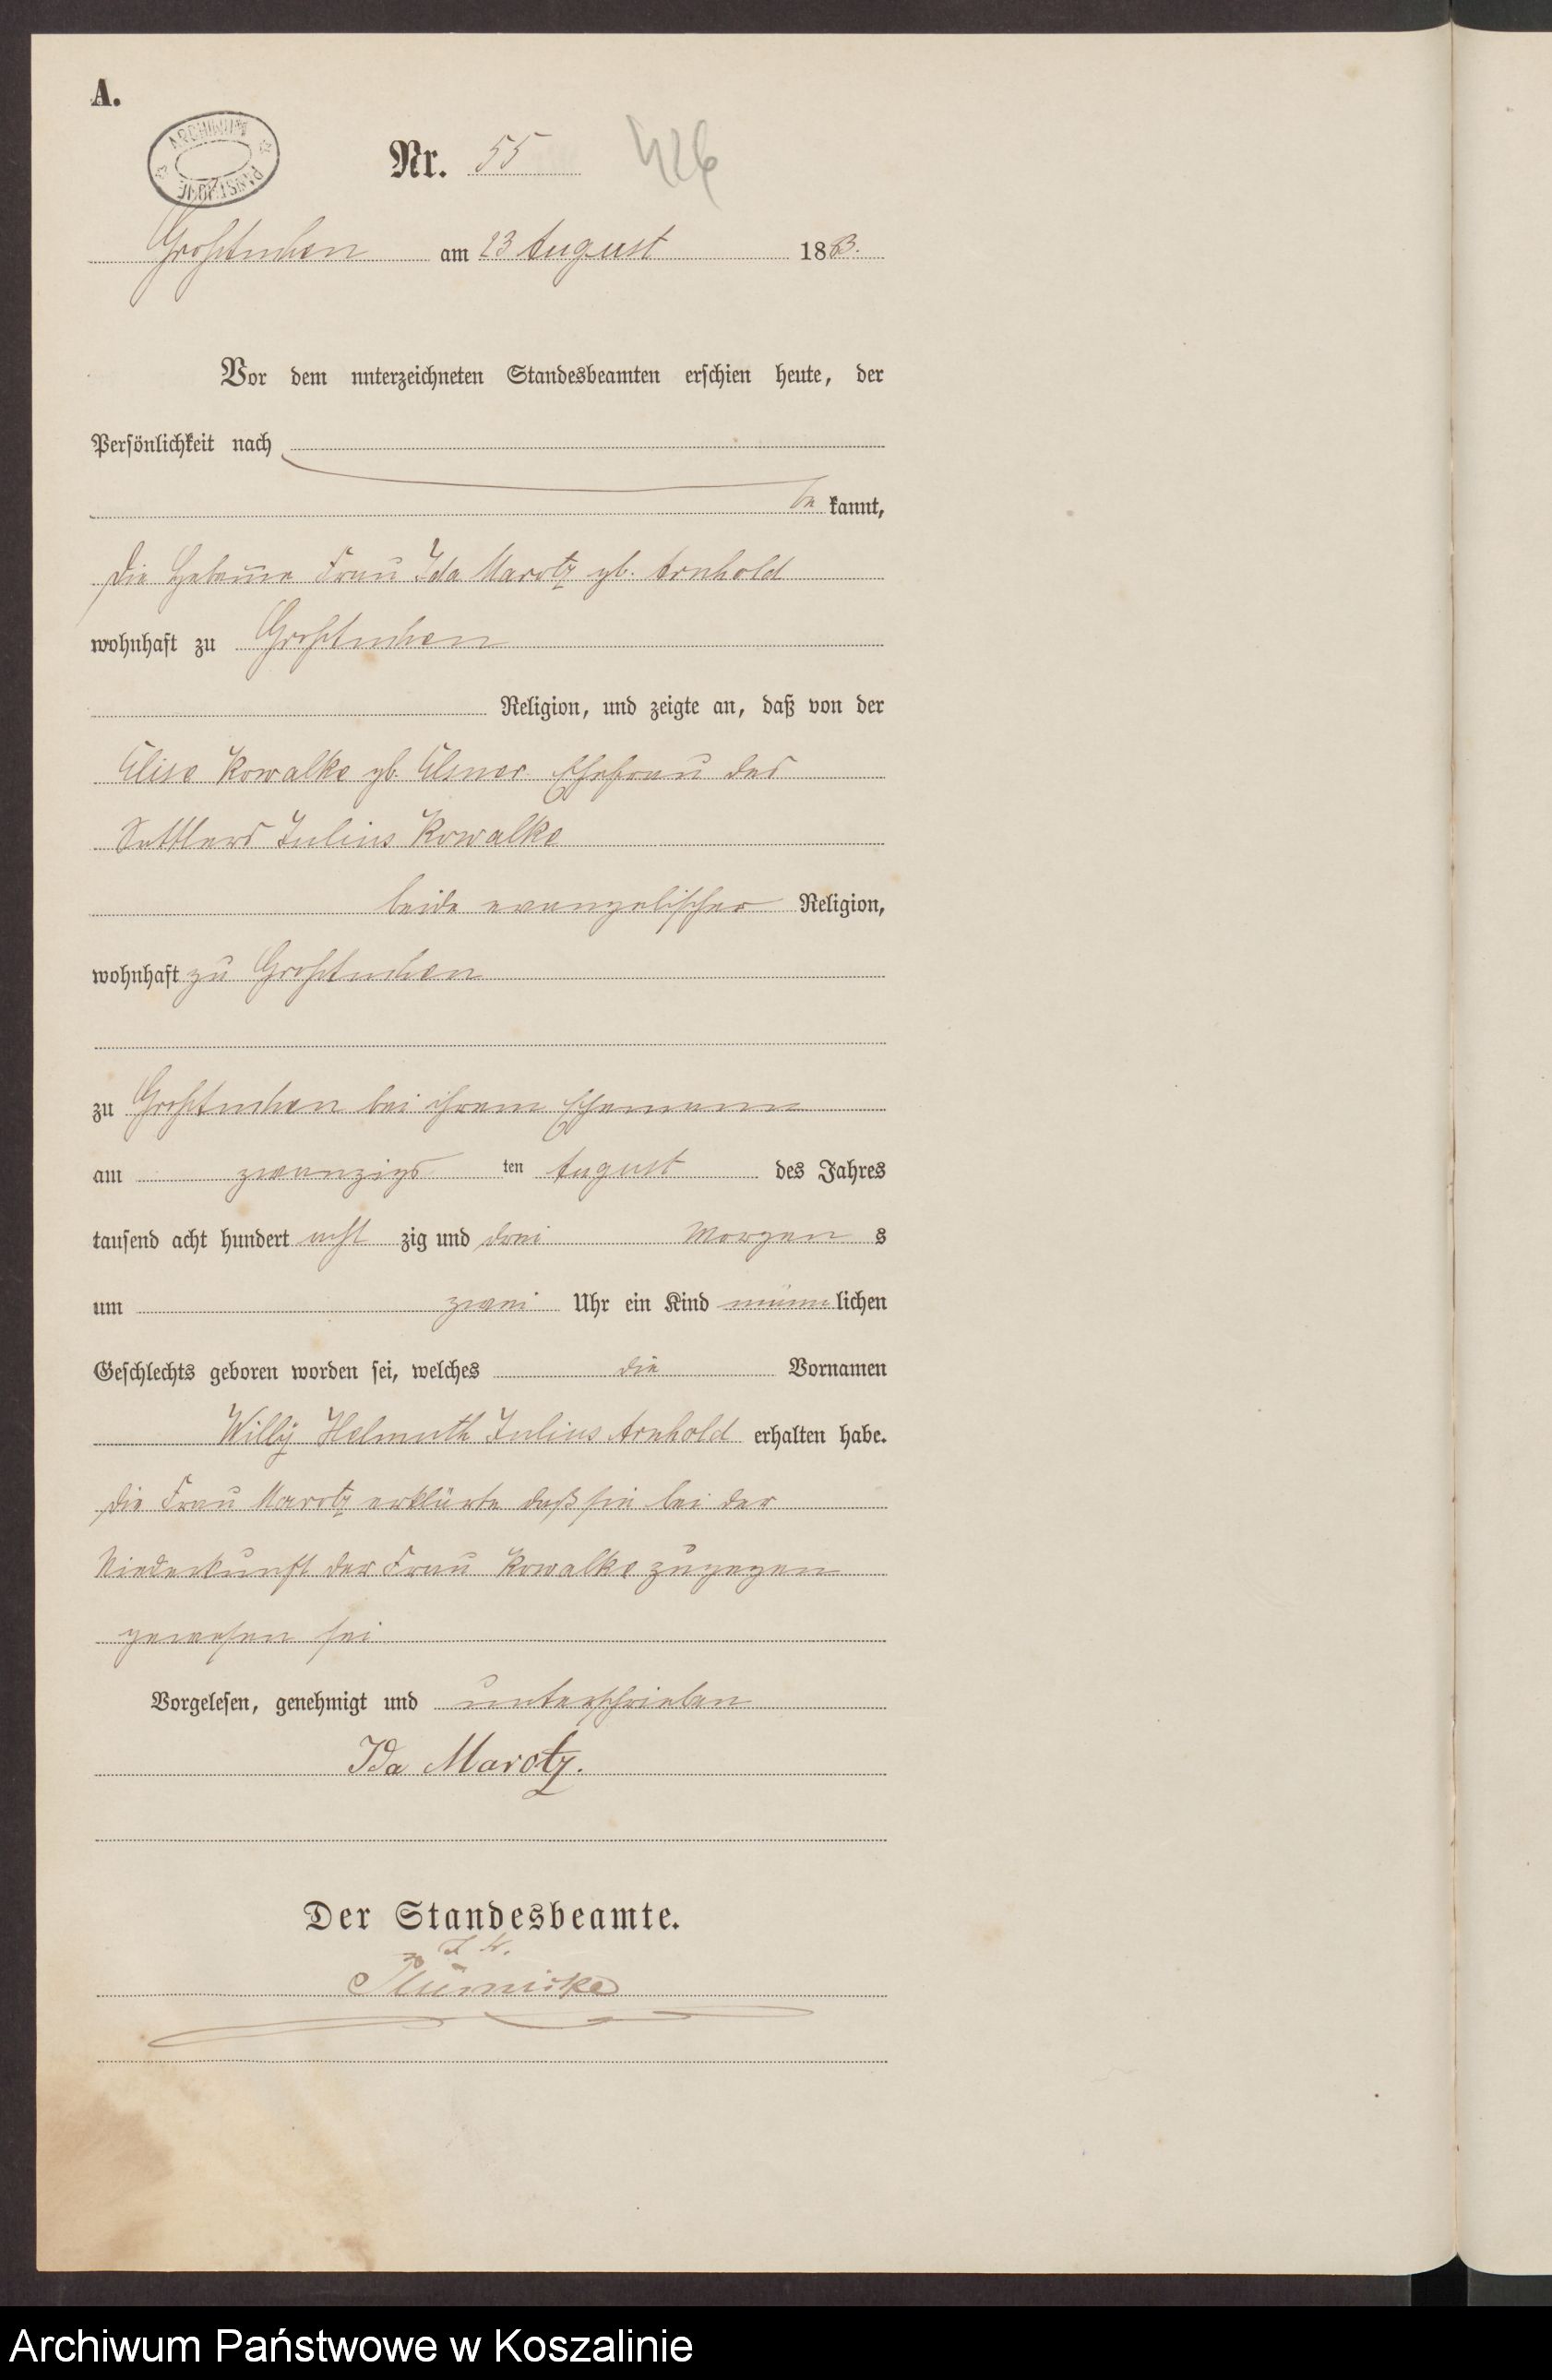 A.
ARCHIWUM PAŃSTWOWE
Nr. 55 426
Großtuchen am 23 August 1883.
Vor dem unterzeichneten Standesbeamten erschien heute, der
Persönlichkeit nach
be kannt,
die Hebamme Frau Ida Marotz gb. Arnhold
wohnhaft zu Großtuchen
Religion, und zeigte an, daß von der
Elise Kowalke gb. Elsner Ehefrau des
Sattlers Julius Kowalke
beide evangelischer Religion,
wohnhaft zu Großtuchen
zu Großtuchen bei ihrem Ehemann
am zwanzigs ten August des Jahres
tausend acht hundert acht zig und drei Morgen s
um zwei Uhr ein Kind männ lichen
Geschlechts geboren worden sei, welches die Vornamen
Willÿ Helmuth Julius Arnhold erhalten habe.
die Frau Marotz erklärte daß sie bei der
Niederkunft der Frau Kowalke zugegen
gewesen sei
Vorgelesen, genehmigt und unterschrieben
Ida Marotz.
Der Standesbeamte.
Archiwum Państwowe w Koszalinie